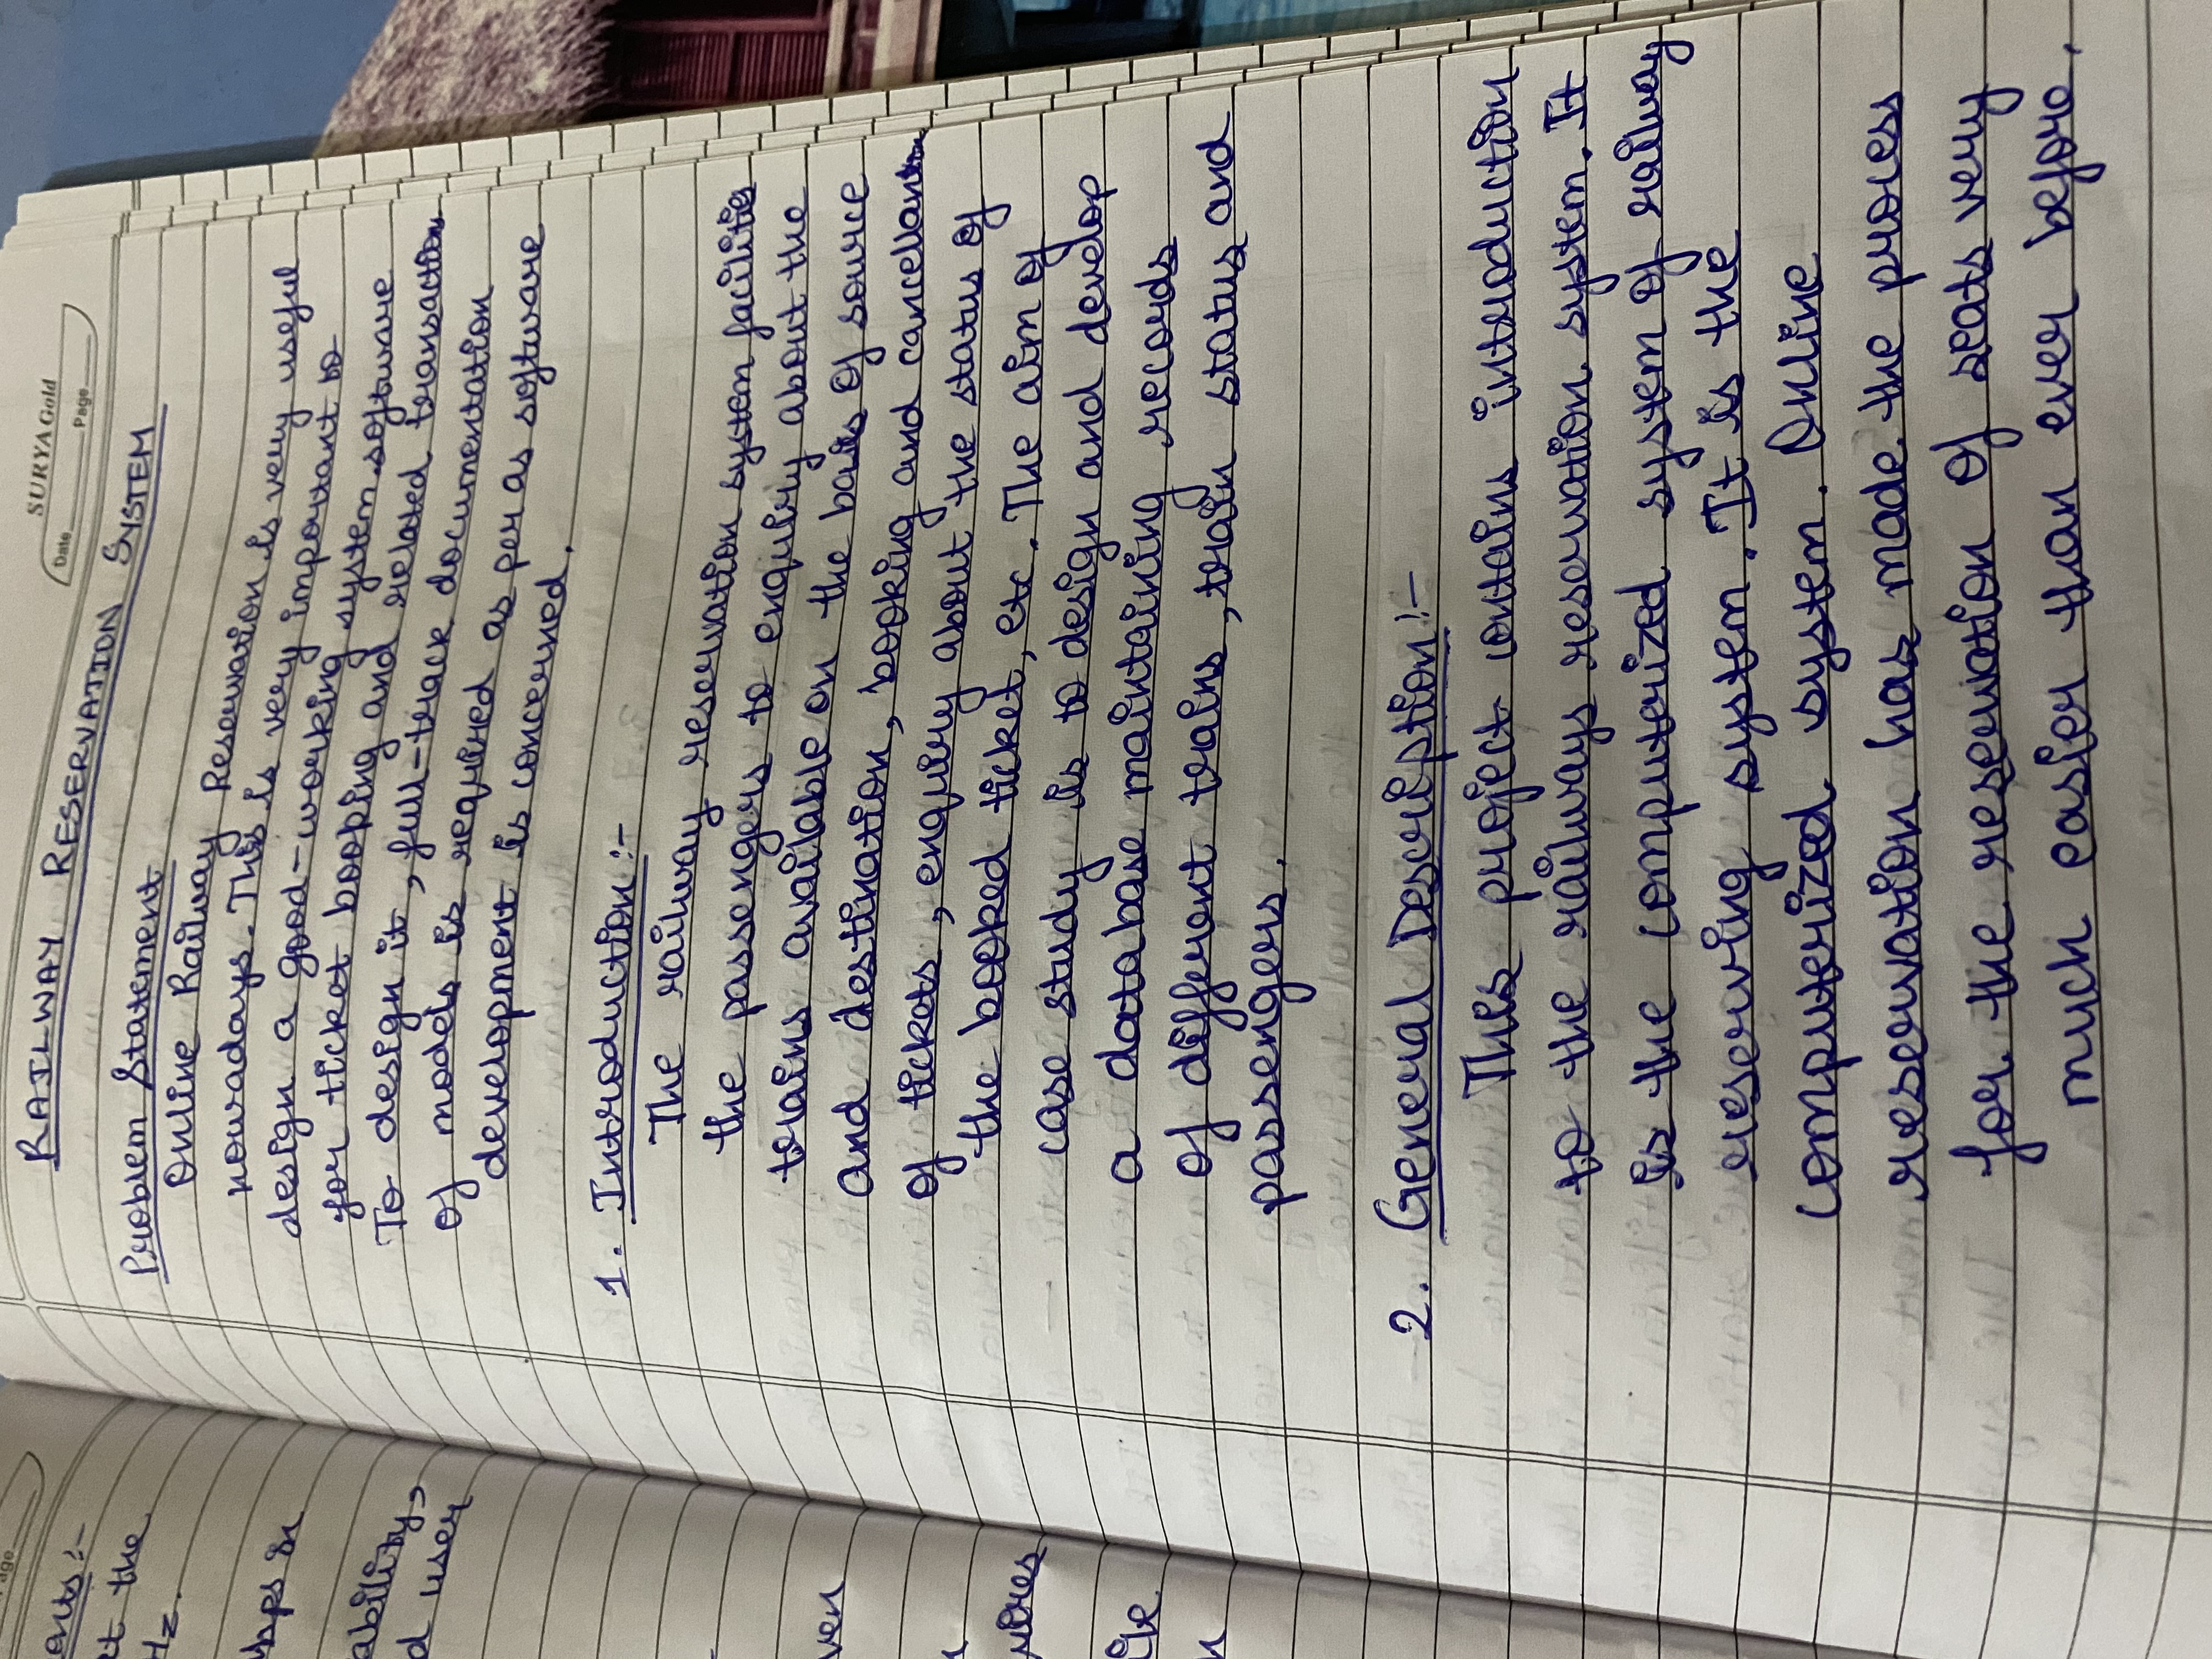 age
ents:-
t the
Hz.
ability,
d user
ven
RAILWAY RESERVATION SYSTEM
SURYA Gold
Date Page
Problem Statement
Online Railway Reservation is very useful
nowadays. This is very important to
design a good-working system software
for ticket booking and related transaction
To design it, full-track documentation
of models is required as per as software
development is concerned.
1. Introduction:-
The railway reservation system facilities
the passengers to enquiry about the
trains available on the basis of source
and destination, booking and
of tickets, enquiry about the status of
the booked ticket, etc. The aim of
case study is to design and develop
a database maintaining records
of different trains, train status and
passengers.
2. General Description:-
This project contains introduction
to the railways reservation system. It
is the computerized system of railway
reserving system. It is the
computerized system. Online
reservation has made the process
for the reservation of seats very
much easier than ever before.